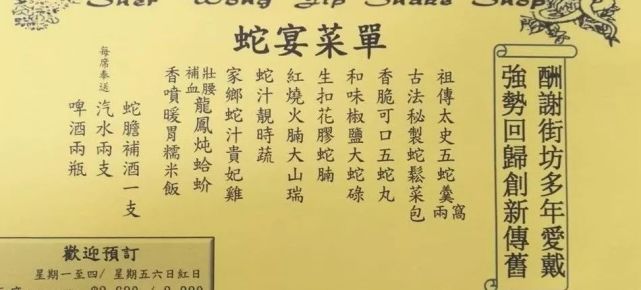 Sher Wong Yip Snake Shop
蛇宴菜單
酬謝街坊多年愛戴
強勢回歸創新傳舊
祖傳太史五蛇羹兩窩
古法秘製蛇鬆菜包
香脆可口五蛇丸
和味椒鹽大蛇碌
生扣花膠蛇腩
紅燒火腩大山瑞
蛇汁靚時蔬
家鄉蛇汁貴妃雞
壯腰補血龍鳳炖蛤蚧
香噴暖胃糯米飯
每席奉送
蛇膽補酒一支
汽水兩支
啤酒兩瓶
歡迎預訂
星期一至四/ 星期五六日紅日